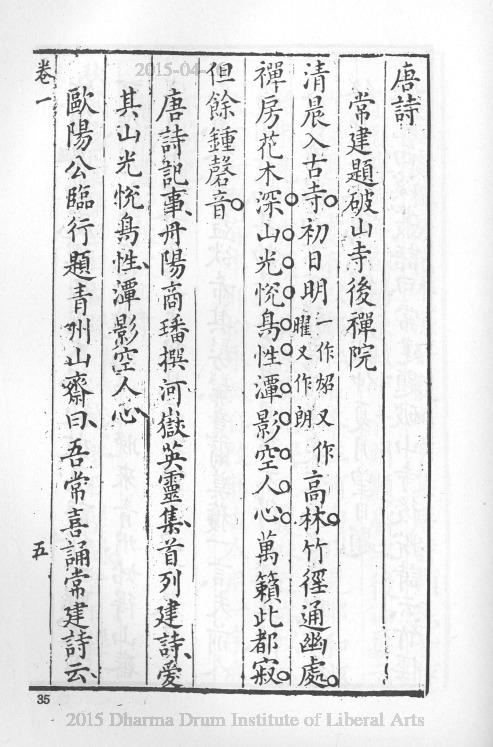 唐詩
常建題破山寺後禪院
清晨入古寺。初日明一作炤又作曜又作朗高林。竹徑通幽處。
禪房花木深。山光悅鳥性。潭影空人心。萬籟此都寂。
但餘鍾磬音。
唐詩記事、丹陽商璠撰河嶽英靈集、首列建詩、愛
其山光悅鳥性、潭影空人心、
歐陽公臨行題青州山齋曰、吾常喜誦常建詩云、
卷一 五
35
2015-04-
2015 Dharma Drum Institute of Liberal Arts